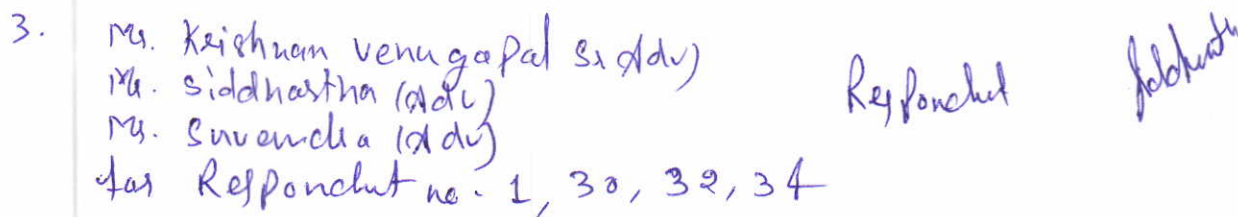 3. Mr. Krishnan Venugopal Sr. Adv)
Mr. Siddhartha (Adv)
Mr. Suvendra (Adv)
for Respondent no. 1, 30, 32, 34
Respondent